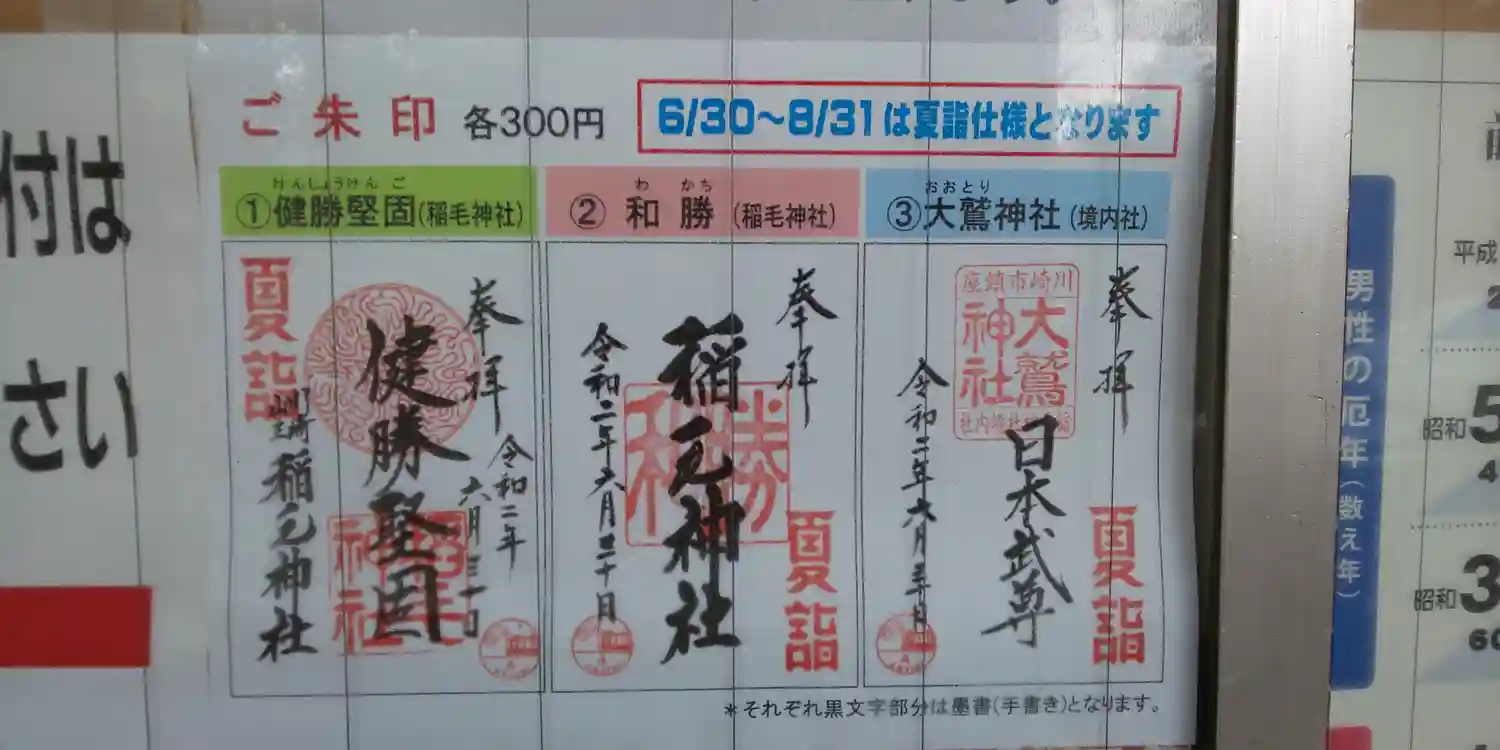 付は
さい
ご朱印 各300円
6/30～8/31は夏詣仕様となります
けんしょうけんご
①健勝堅固(稲毛神社)
わ かち
②和勝(稲毛神社)
おおとり
③大鷲神社(境内社)
奉拝
令和二年
六月三十日
健勝堅固
神社
夏詣
川崎稲毛神社
奉拝
稲毛神社
和勝
令和二年六月三十日
夏詣
奉拝
川崎市鎮座
大鷲神社
日本武尊
令和二年六月三十日
夏詣
＊それぞれ黒文字部分は墨書(手書き)となります。
男性の厄年(数え年)
平成
2
昭和5
4
昭和3
60